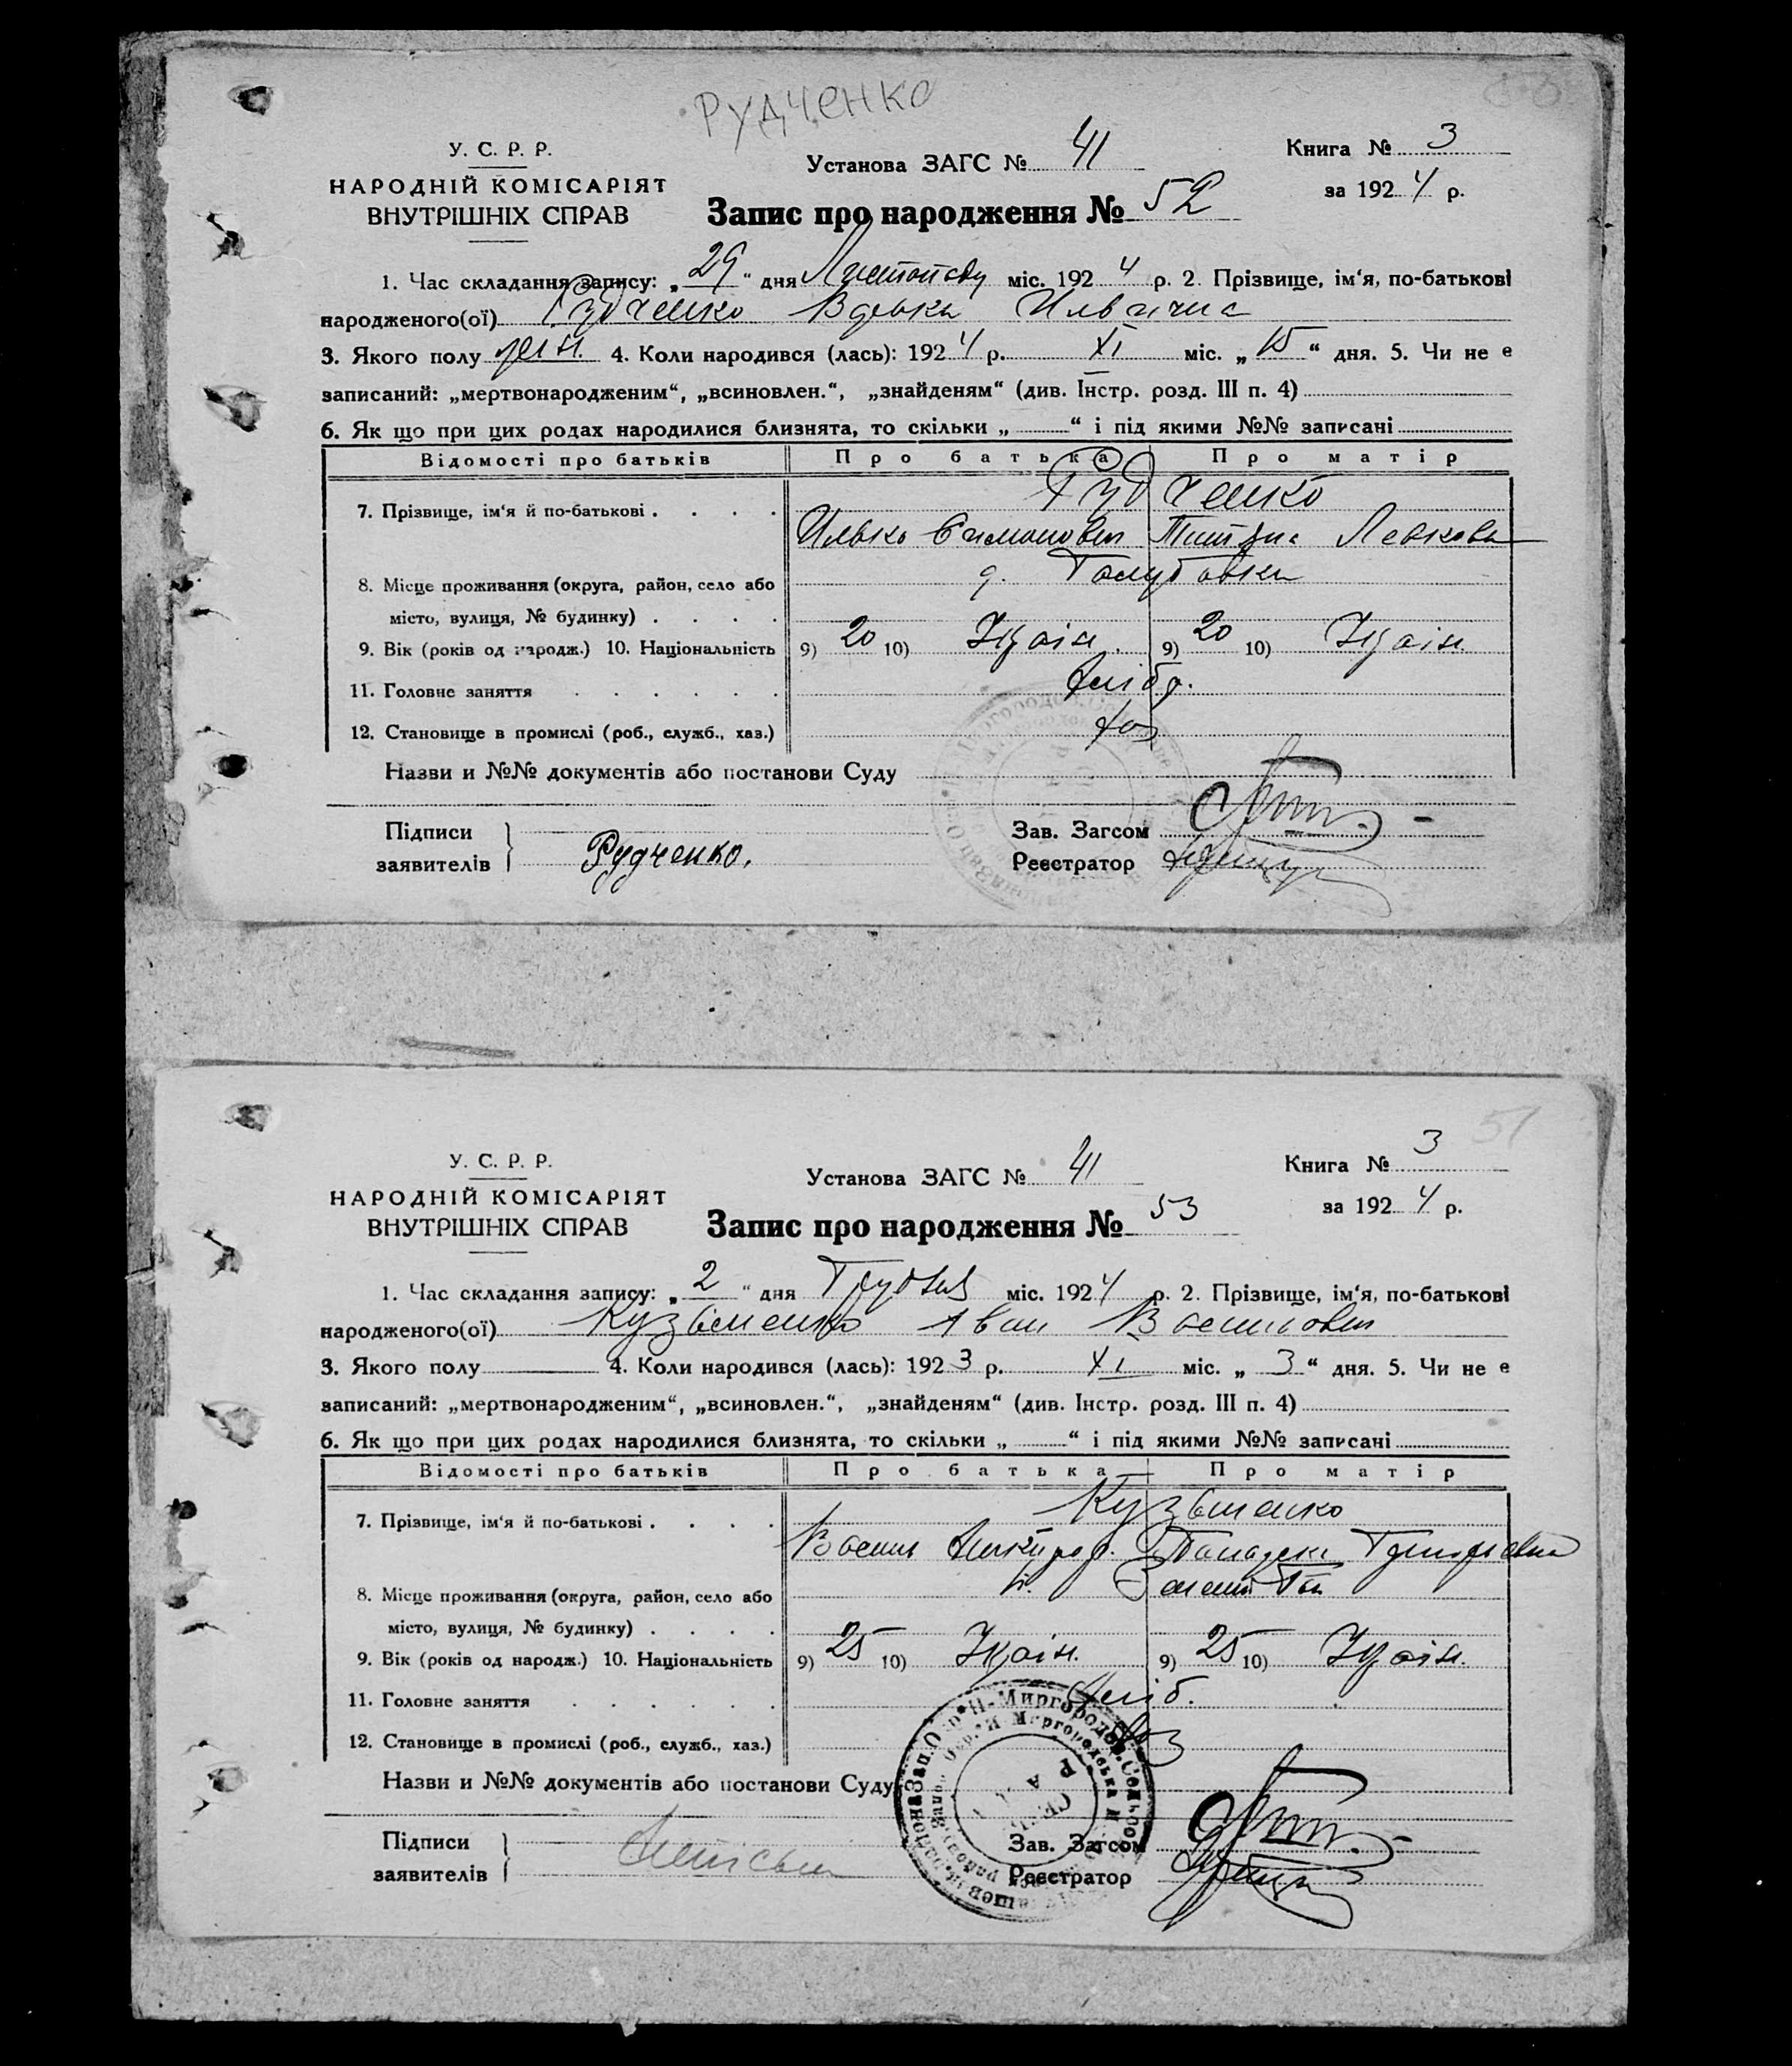 Рудченко
У. С. Р. Р.
НАРОДНІЙ КОМІСАРІЯТ
ВНУТРІШНІХ СПРАВ
Установа ЗАГС № 41
Книга № 3
за 1924 р.
Запис про народження № 52
1. Час складання запису: „29“ дня Листопаду міс. 1924 р. 2. Прізвище, ім‘я, по-батькові
народженого(ої) Рудченко
3. Якого полу жін. 4. Коли народився (лась): 1924 р. XI міс. „15“ дня. 5. Чи не е
записаний: „мертвонародженим“, „всиновлен.“, „знайденям“ (див. Інстр. розд. III п. 4)
6. Як що при цих родах народилися близнята, то скільки „ “ і під якими №№ записані
Відомості про батьків Про батька Про матір
Рудченко
7. Прізвище, ім‘я й по-батькові . . . .
Илько Левкова
8. Місце проживання (округа, район, село або
місто, вулиця, № будинку) . . . .
9. Вік (років од народж.) 10. Національність 9) 20 10) Украін. 9) 20 10) Украін.
11. Головне заняття . . . . . . Хлібр.
12. Становище в промислі (роб., служб., хаз.) хоз
Назви и №№ документів або постанови Суду
Підписи
заявителів Рудченко.
Зав. Загсом
Реєстратор
51
У. С. Р. Р.
НАРОДНІЙ КОМІСАРІЯТ
ВНУТРІШНІХ СПРАВ
Установа ЗАГС № 41
Книга № 3
за 1924 р.
Запис про народження № 53
1. Час складання запису: „2“ дня Грудня міс. 1924 р. 2. Прізвище, ім‘я, по-батькові
народженого(ої) Кузьменко Іван Васильович
3. Якого полу 4. Коли народився (лась): 1923 р. XI міс. „3“ дня. 5. Чи не е
записаний: „мертвонародженим“, „всиновлен.“, „знайденям“ (див. Інстр. розд. III п. 4)
6. Як що при цих родах народилися близнята, то скільки „ “ і під якими №№ записані
Відомості про батьків Про батька Про матір
Кузьменко
7. Прізвище, ім‘я й по-батькові . . . .
Василь Григоріевна
8. Місце проживання (округа, район, село або
місто, вулиця, № будинку) . . . .
9. Вік (років од народж.) 10. Національність 9) 25 10) Украін. 9) 25 10) Украін.
11. Головне заняття . . . . . . Хліб.
12. Становище в промислі (роб., служб., хаз.) хоз
Назви и №№ документів або постанови Суду
Підписи
заявителів
Зав. Загсом
Реєстратор